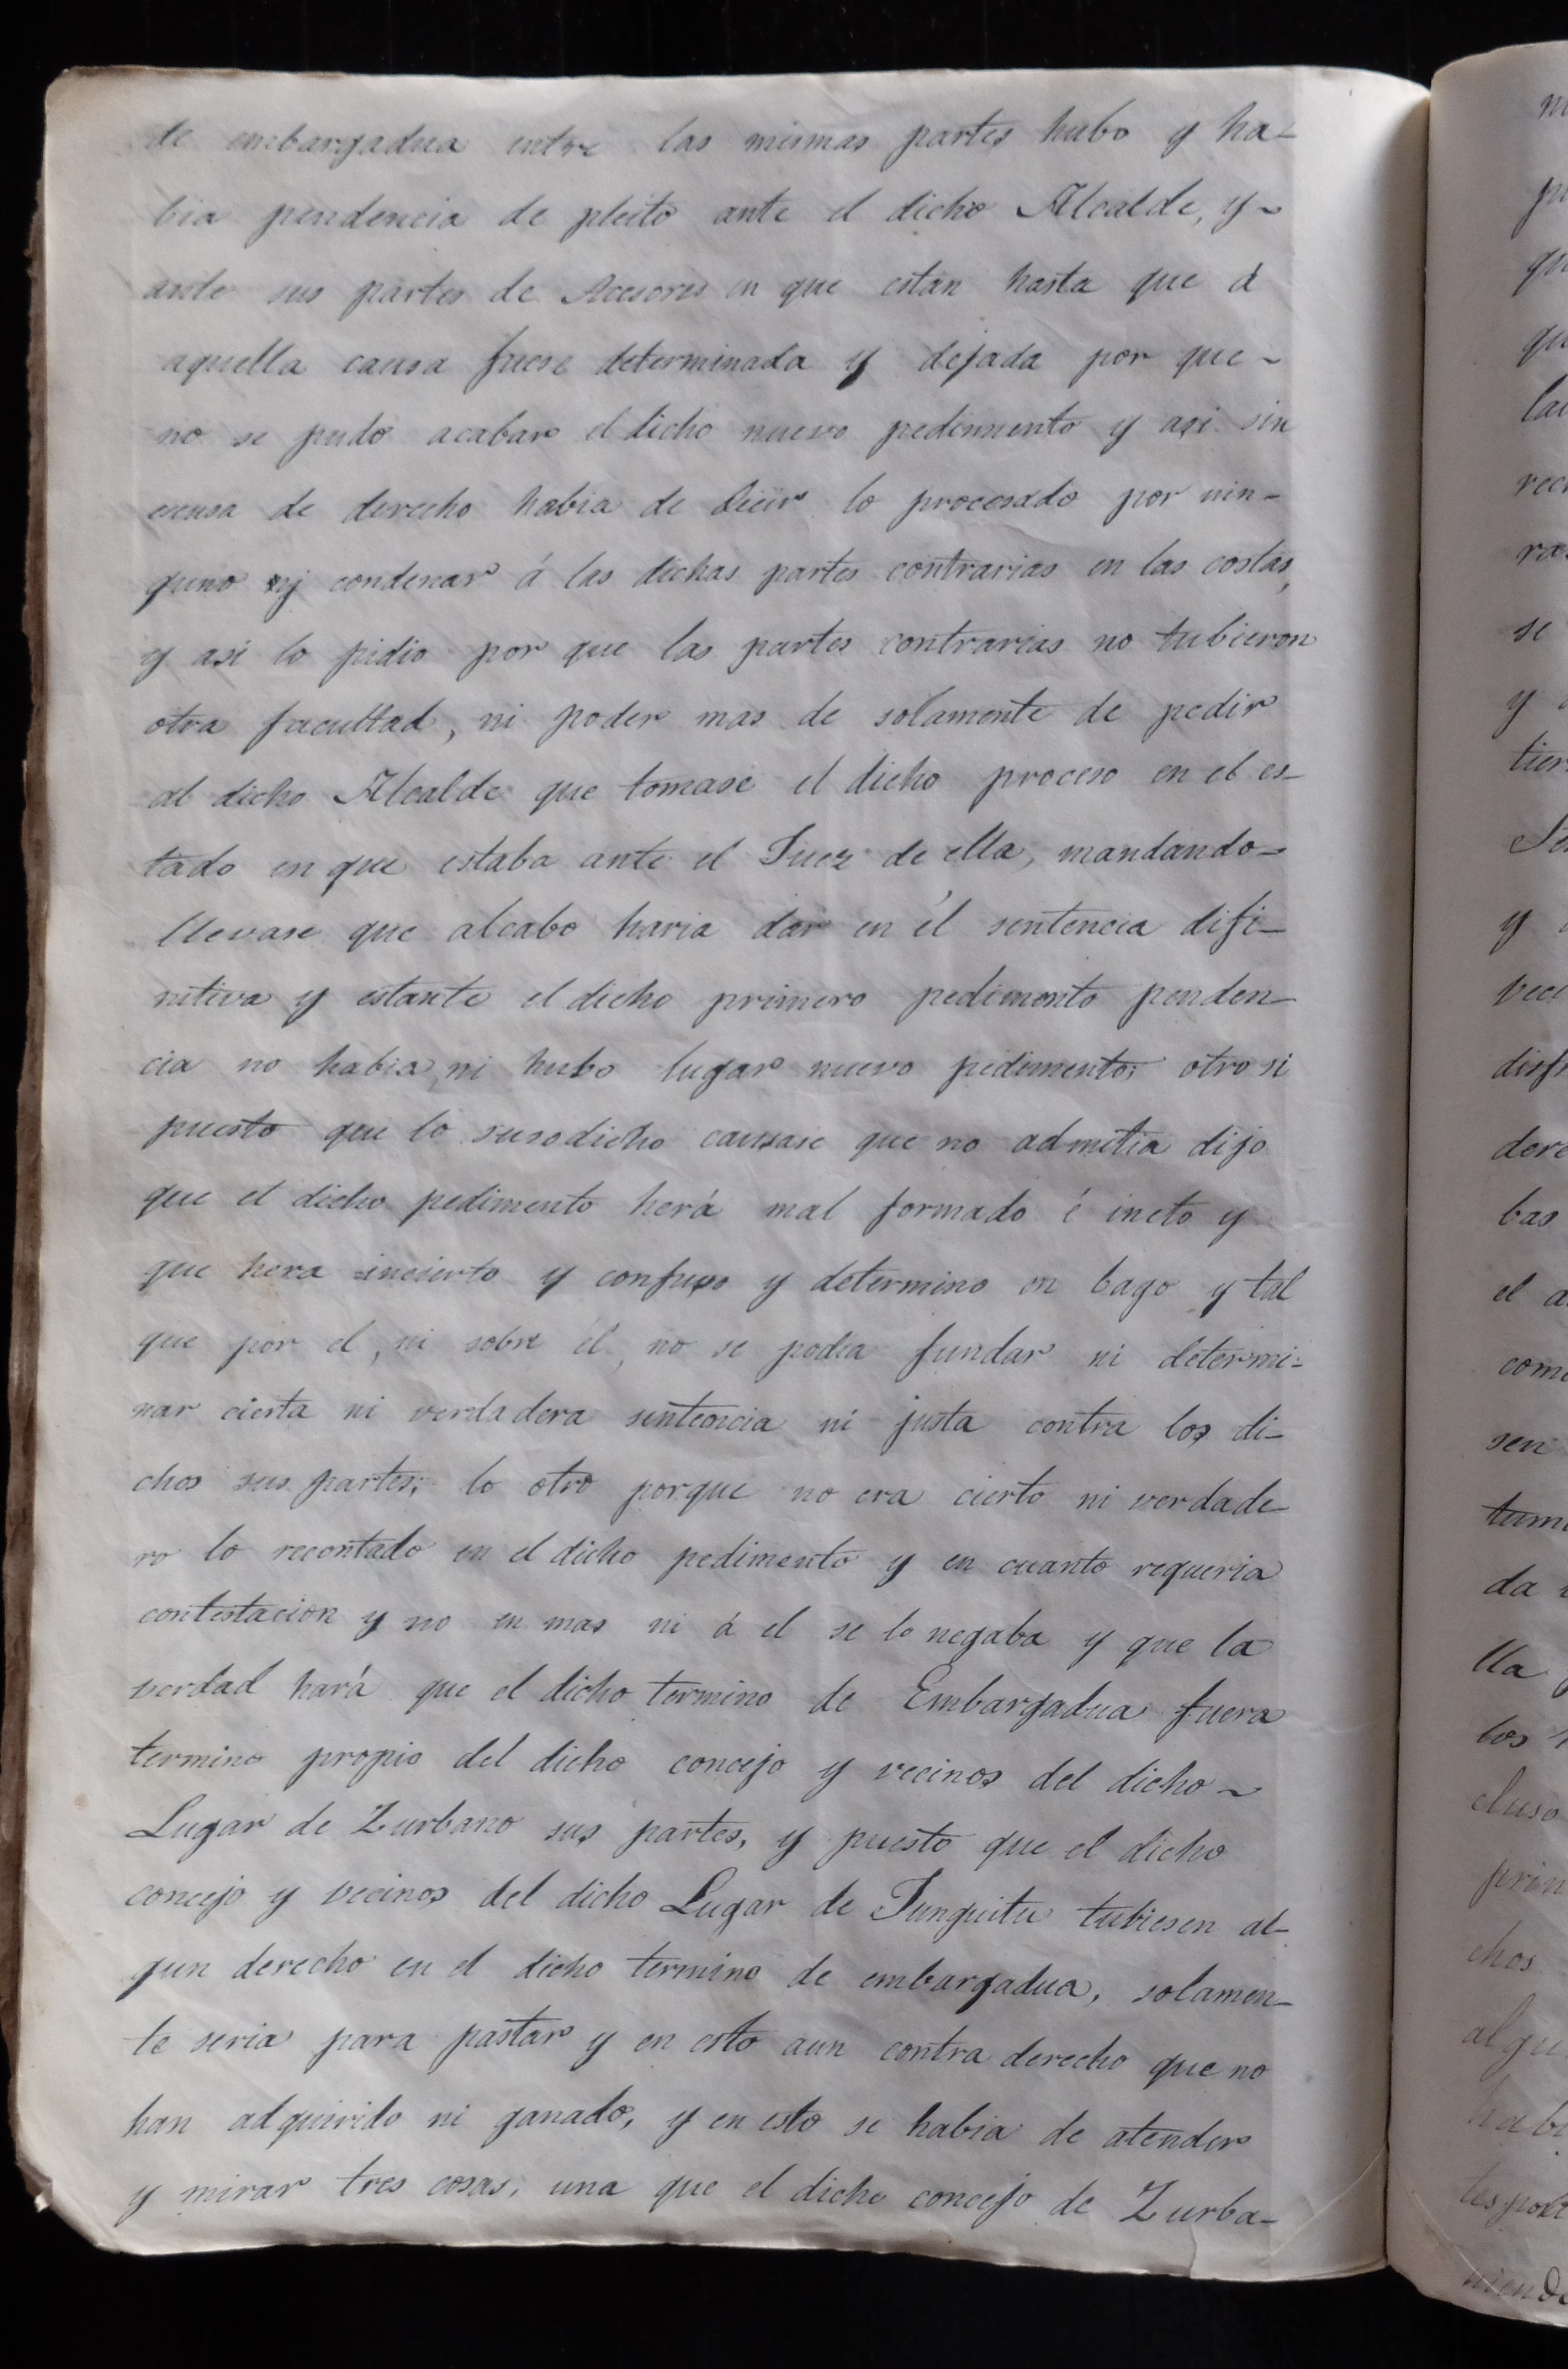 de embargadua entre las mismas partes hubo y ha-
bia pendencia de pleito ante el dicho Alcalde, y~
ante sus partes de Acesores en que estan hasta que á
aquella causa fuese determinada y dejada por que~
no se pudo acabar el dicho nuevo pedimento y asi sin
escusa de derecho habia de decir lo procesado por nin-
guno y condenar á las dichas partes contrarias en las costas,
y asi lo pidio por que las partes contrarias no tubieron
otra facultad, ni poder mas de solamente de pedir
al dicho Alcalde que tomase el dicho proceso en el es-
tado en que estaba ante el Juez de ella, mandando-
llevase que alcabo haria dar en él sentencia difi-
nitiva y estante el dicho primero pedimento penden-
cia no habia ni hubo lugar nuevo pedimento; otro si
puesto que lo susodicho causase que no admitia dijo
que el dicho pedimento herá mal formado é ineto y
que hera incierto y confuso y determino en bago y tal
que por el, ni sobre él, no se podia fundar ni determi-
nar cierta ni verdadera sentencia ni justa contra los di-
chos sus partes; lo otro porque no era cierto ni verdade
ro lo recontado en el dicho pedimento y en cuanto requeria
contestacion y no en mas ni á el se lo negaba y que la
verdad hará que el dicho termino de Embargadua fuera
termino propio del dicho concejo y vecinos del dicho~
Lugar de Zurbano sus partes, y puesto que el dicho
concejo y vecinos del dicho Lugar de Junguitu tubiesen al-
gun derecho en el dicho termino de embargadua, solamen-
te seria para pastar y en esto aun contra derecho que no
han adquirido ni ganado, y en esto se habia de atender
y mirar tres cosas, una que el dicho concejo de Zurba-